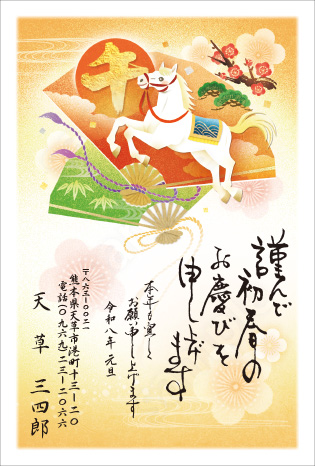 午
謹んで
初春の
お慶びを
申し上げ
ます
本年も宜しく
お願い申し上げます
令和八年 元旦
〒八六三-〇〇二一
熊本県天草市港町十三-二〇
電話(〇九六九)二三-二〇六六
天草 三四郎